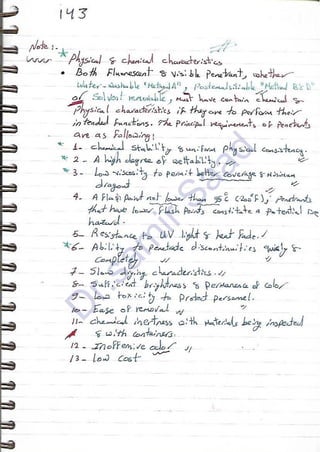 143
Note:-
* Physical & chemical characteristics
• Both Fluorescent & Visible Penetrant, whether
water-washable "Method A", Postemulsifiable "Method B & D"
or Solvent removable, must have contain chemical &
Physical characteristics if they are to perform their
intended functions. The Principal requirements of Penetrants
are as Following:
* 1- chemical Stability & uniform Physical consistency.
* 2- A high degree of wettability.
* 3- low viscosity to permit better coverage & minimum
dragout
4- A Flash Point not lower than 95°C (200°F), Penetrants
that have lower Flash Points constitute a Potential
hazard.
5- Resistance to UV light & heat fade.
* 6- Ability to penetrate discontinuities quickly &
completely
7- Slow drying characteristics.
8- Sufficient brightness & Permanence of color
9- Low toxicity to Protect personnel.
10- Ease of removal
11- chemical inertness with materials being inspected
& with containers.
12- Inoffensive odor
13- low Cost